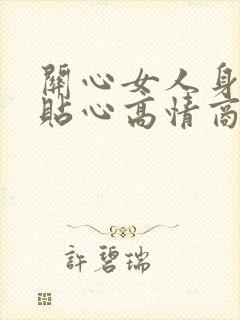 關心女人身
貼心高情商
許碧瑞